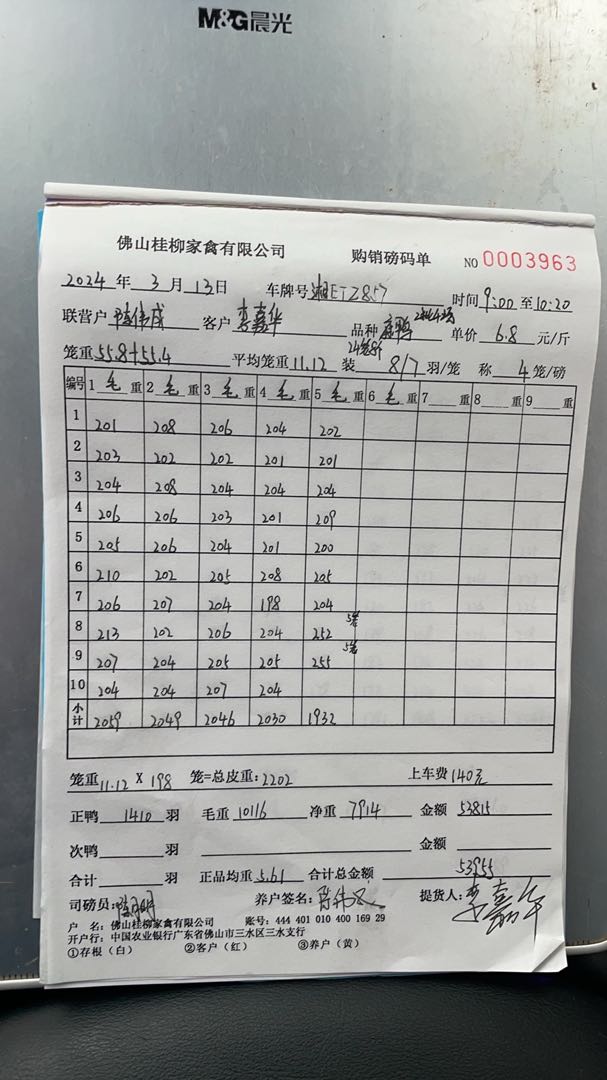 M&G晨光
佛山桂柳家禽有限公司 购销磅码单 NO 0003963
2024 年 3 月 13日 车牌号 湘ETZ857 时间 9:00 至 10:20
联营户 客户 李嘉华 品种 麻鸭 单价 6.8 元/斤
笼重 55.8+55.4 平均笼重 11.12 装 8/7 羽/笼 称 4 笼/磅
编号 1 毛 重 2 毛 重 3 毛 重 4 毛 重 5 毛 重 6 毛 重 7 重 8 重 9 重
1 201 208 206 204 202
2 203 202 202 201 201
3 204 208 204 204 204
4 206 206 203 201 209
5 205 206 204 201 200
6 210 202 205 208 205
7 206 207 204 198 204
8 213 202 206 204 252 5笼
9 207 204 205 205 255 5笼
10 204 204 207 204
小计 2059 2049 2046 2030 1932
笼重 11.12 × 198 笼=总皮重: 2202 上车费 140元
正鸭 1410 羽 毛重 10116 净重 7914 金额 53815
次鸭 羽 金额
合计 羽 正品均重 5.61 合计总金额 53955
司磅员: 养户签名: 提货人: 李嘉华
户 名: 佛山桂柳家禽有限公司 账号: 444 401 010 400 169 29
开户行: 中国农业银行广东省佛山市三水区三水支行
①存根（白） ②客户（红） ③养户（黄）